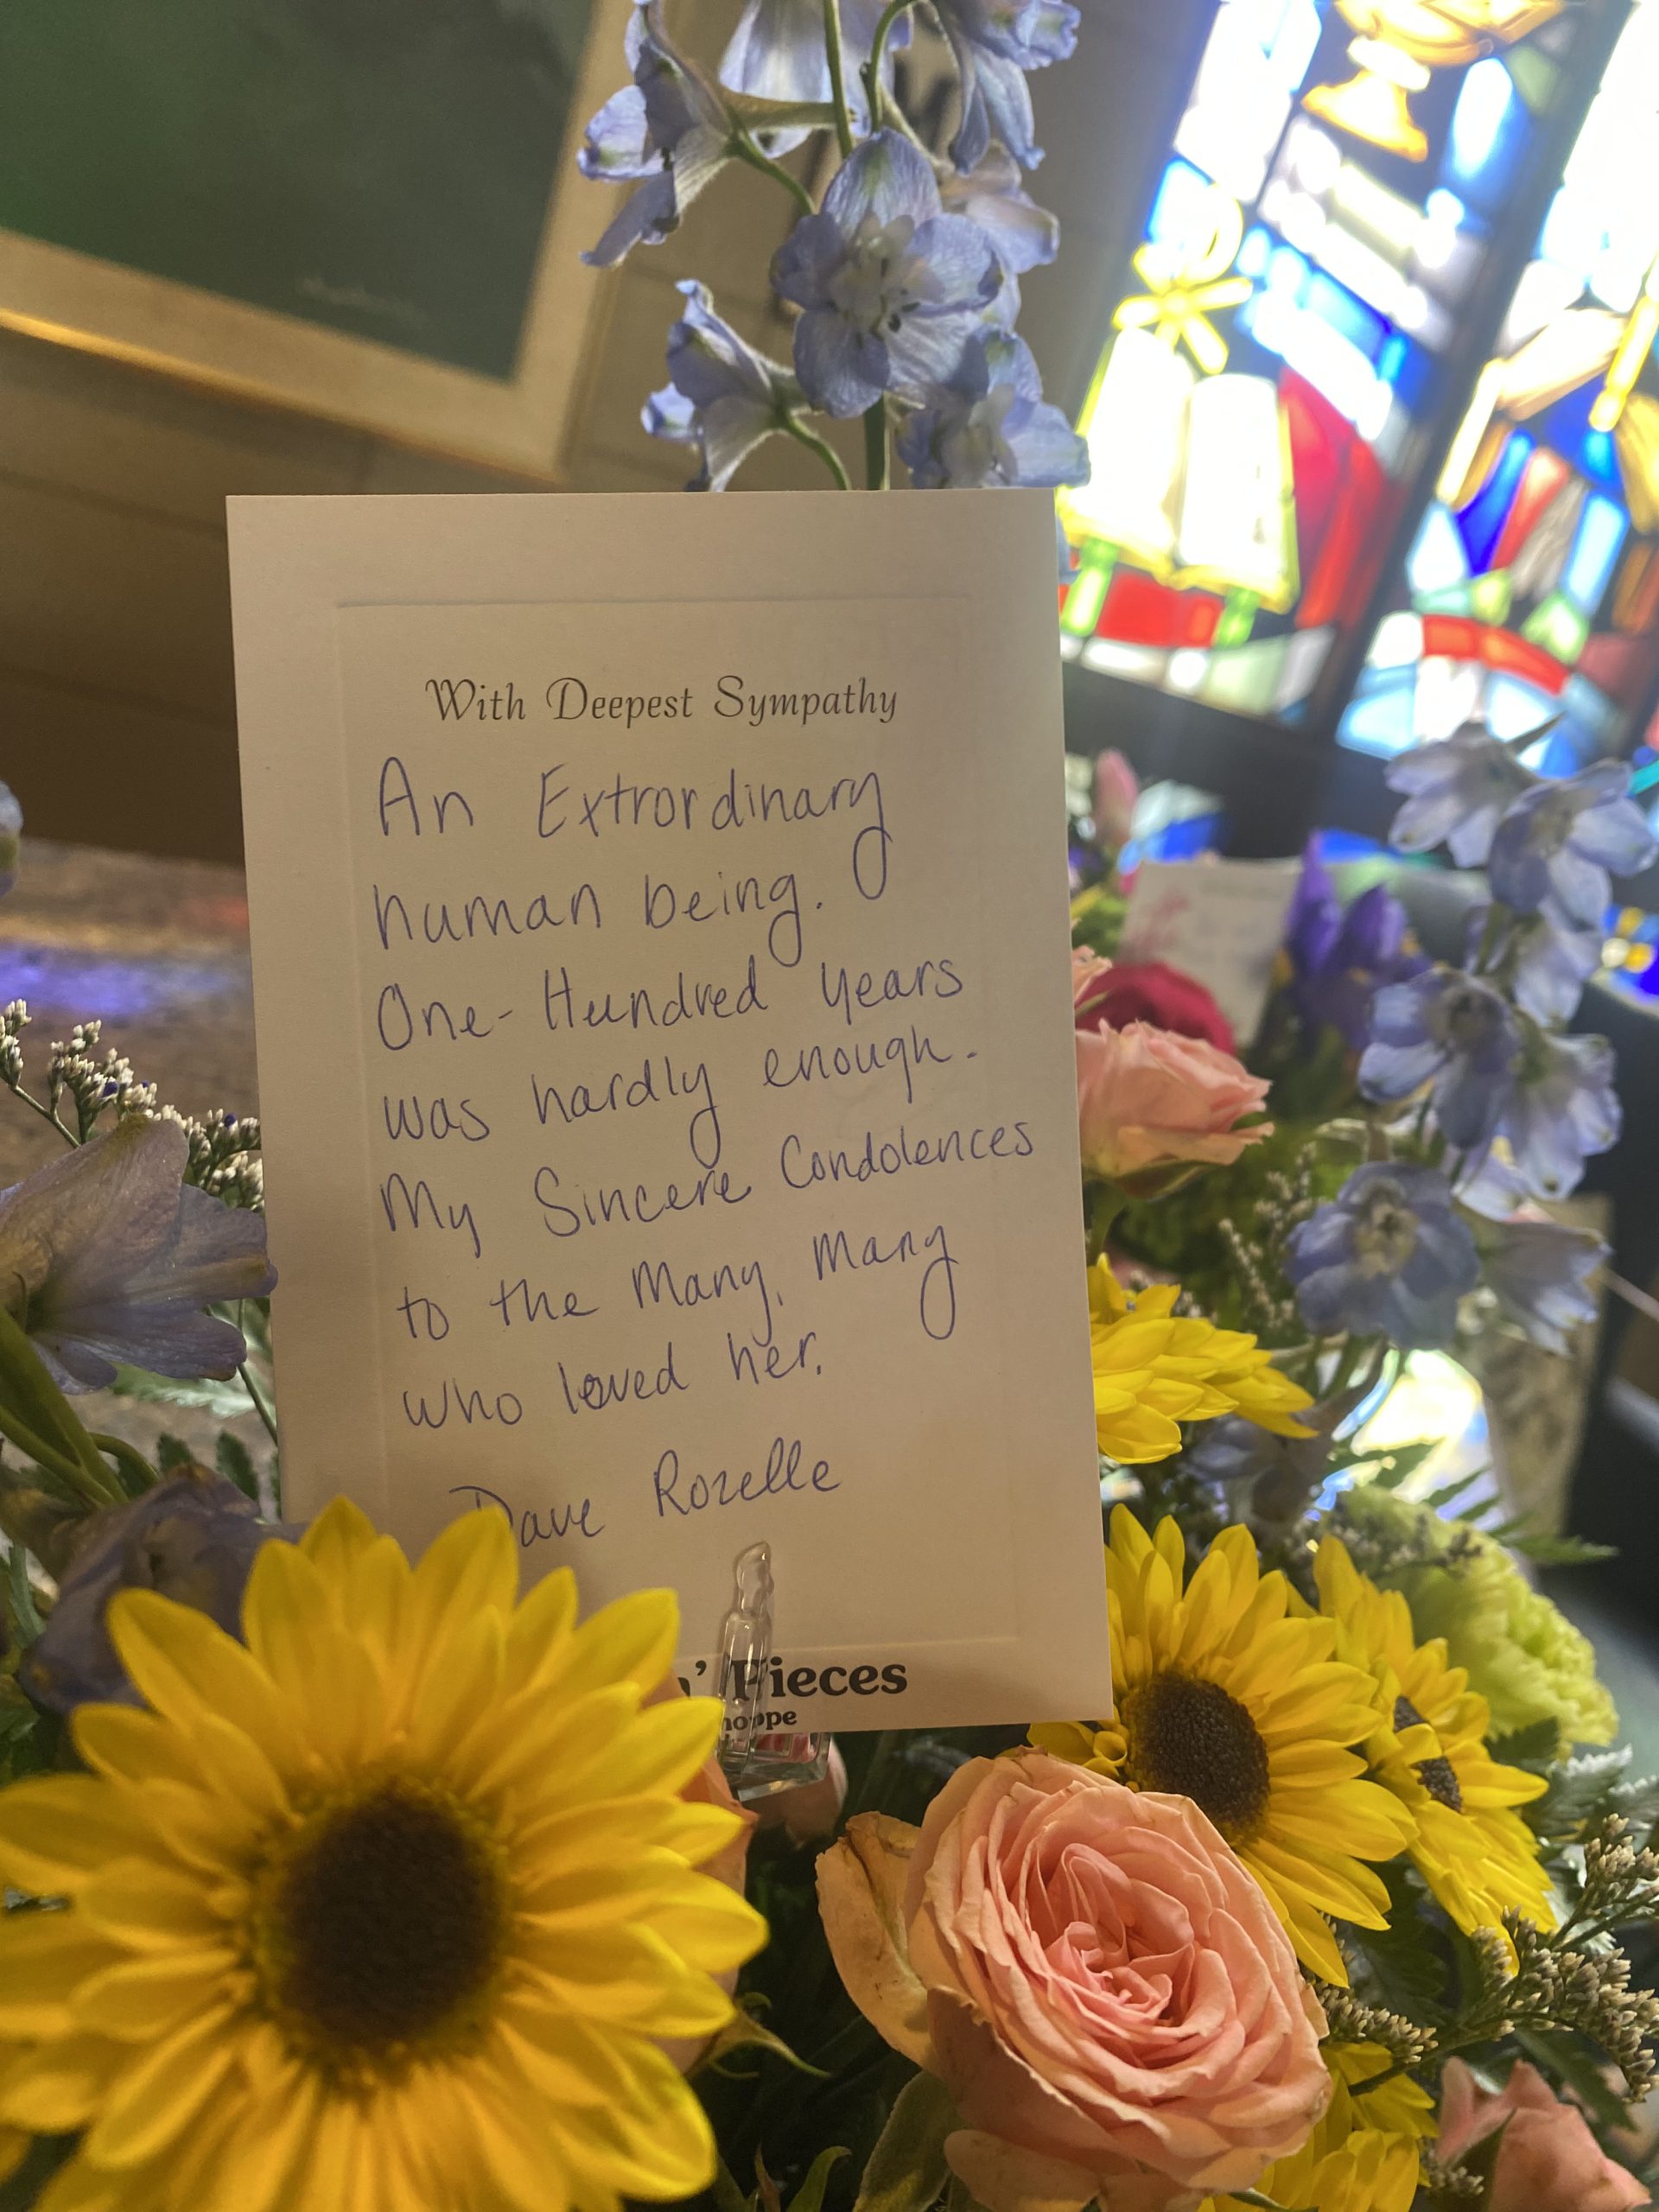 With Deepest Sympathy
An Extrordinary
human being.
One-Hundred years
was hardly enough.
My Sincere Condolences
to the Many, Many
who loved her.
Dave Rozelle
Pieces